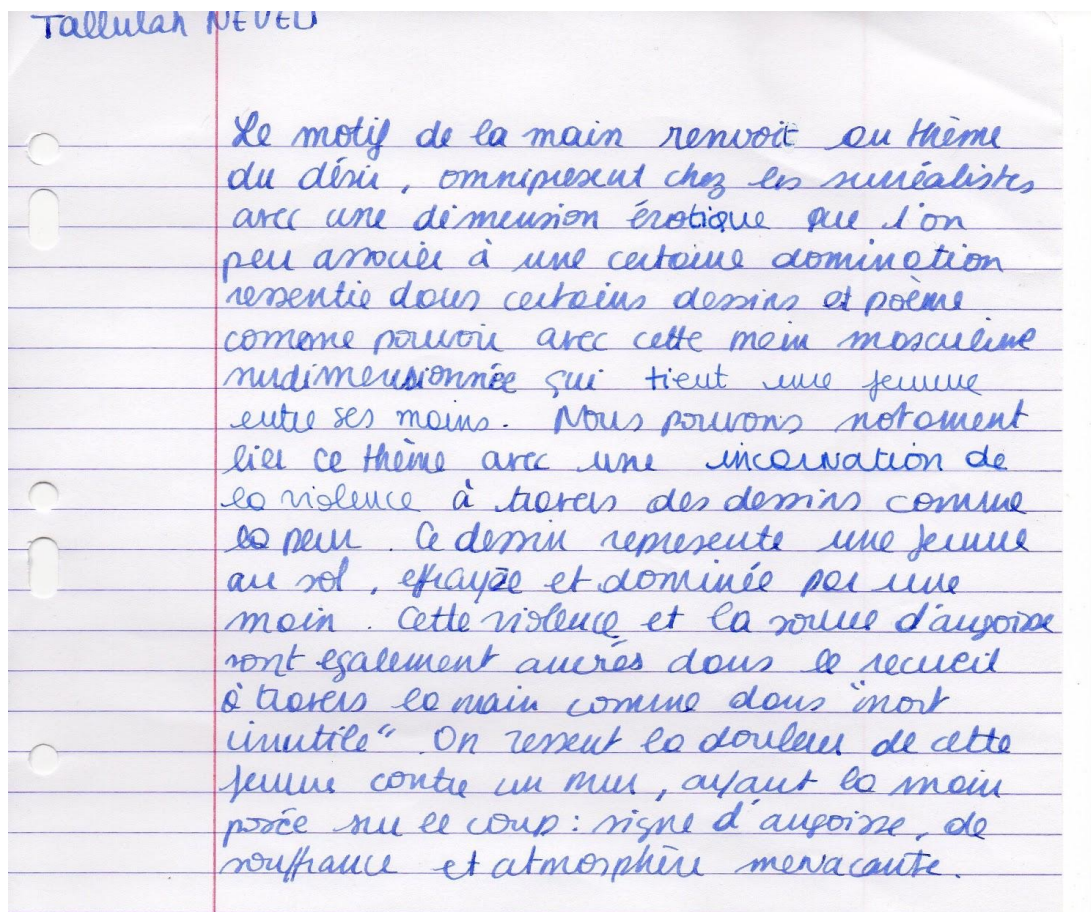 Tallulah NEVEU
Le motif de la main renvoit au thème
du désir, omnipresent chez les surréalistes
avec une dimension érotique que l'on
peu associer à une certaine domination
ressentie dans certains dessins et poème
comme pouvoir avec cette main masculine
surdimensionnée qui tient une femme
entre ses mains. Nous pouvons notament
lier ce thème avec une incarnation de
la violence à travers des dessins comme
la peur. Ce dessin represente une femme
au sol, effrayée et dominée par une
main. Cette violence et la source d'angoisse
sont egalement ancrés dans le recueil
à travers la main comme dans "mort
inutile". On ressent la douleur de cette
femme contre un mur, ayant la main
posée sur le coup : signe d'angoisse, de
souffrance et atmosphère menacante.